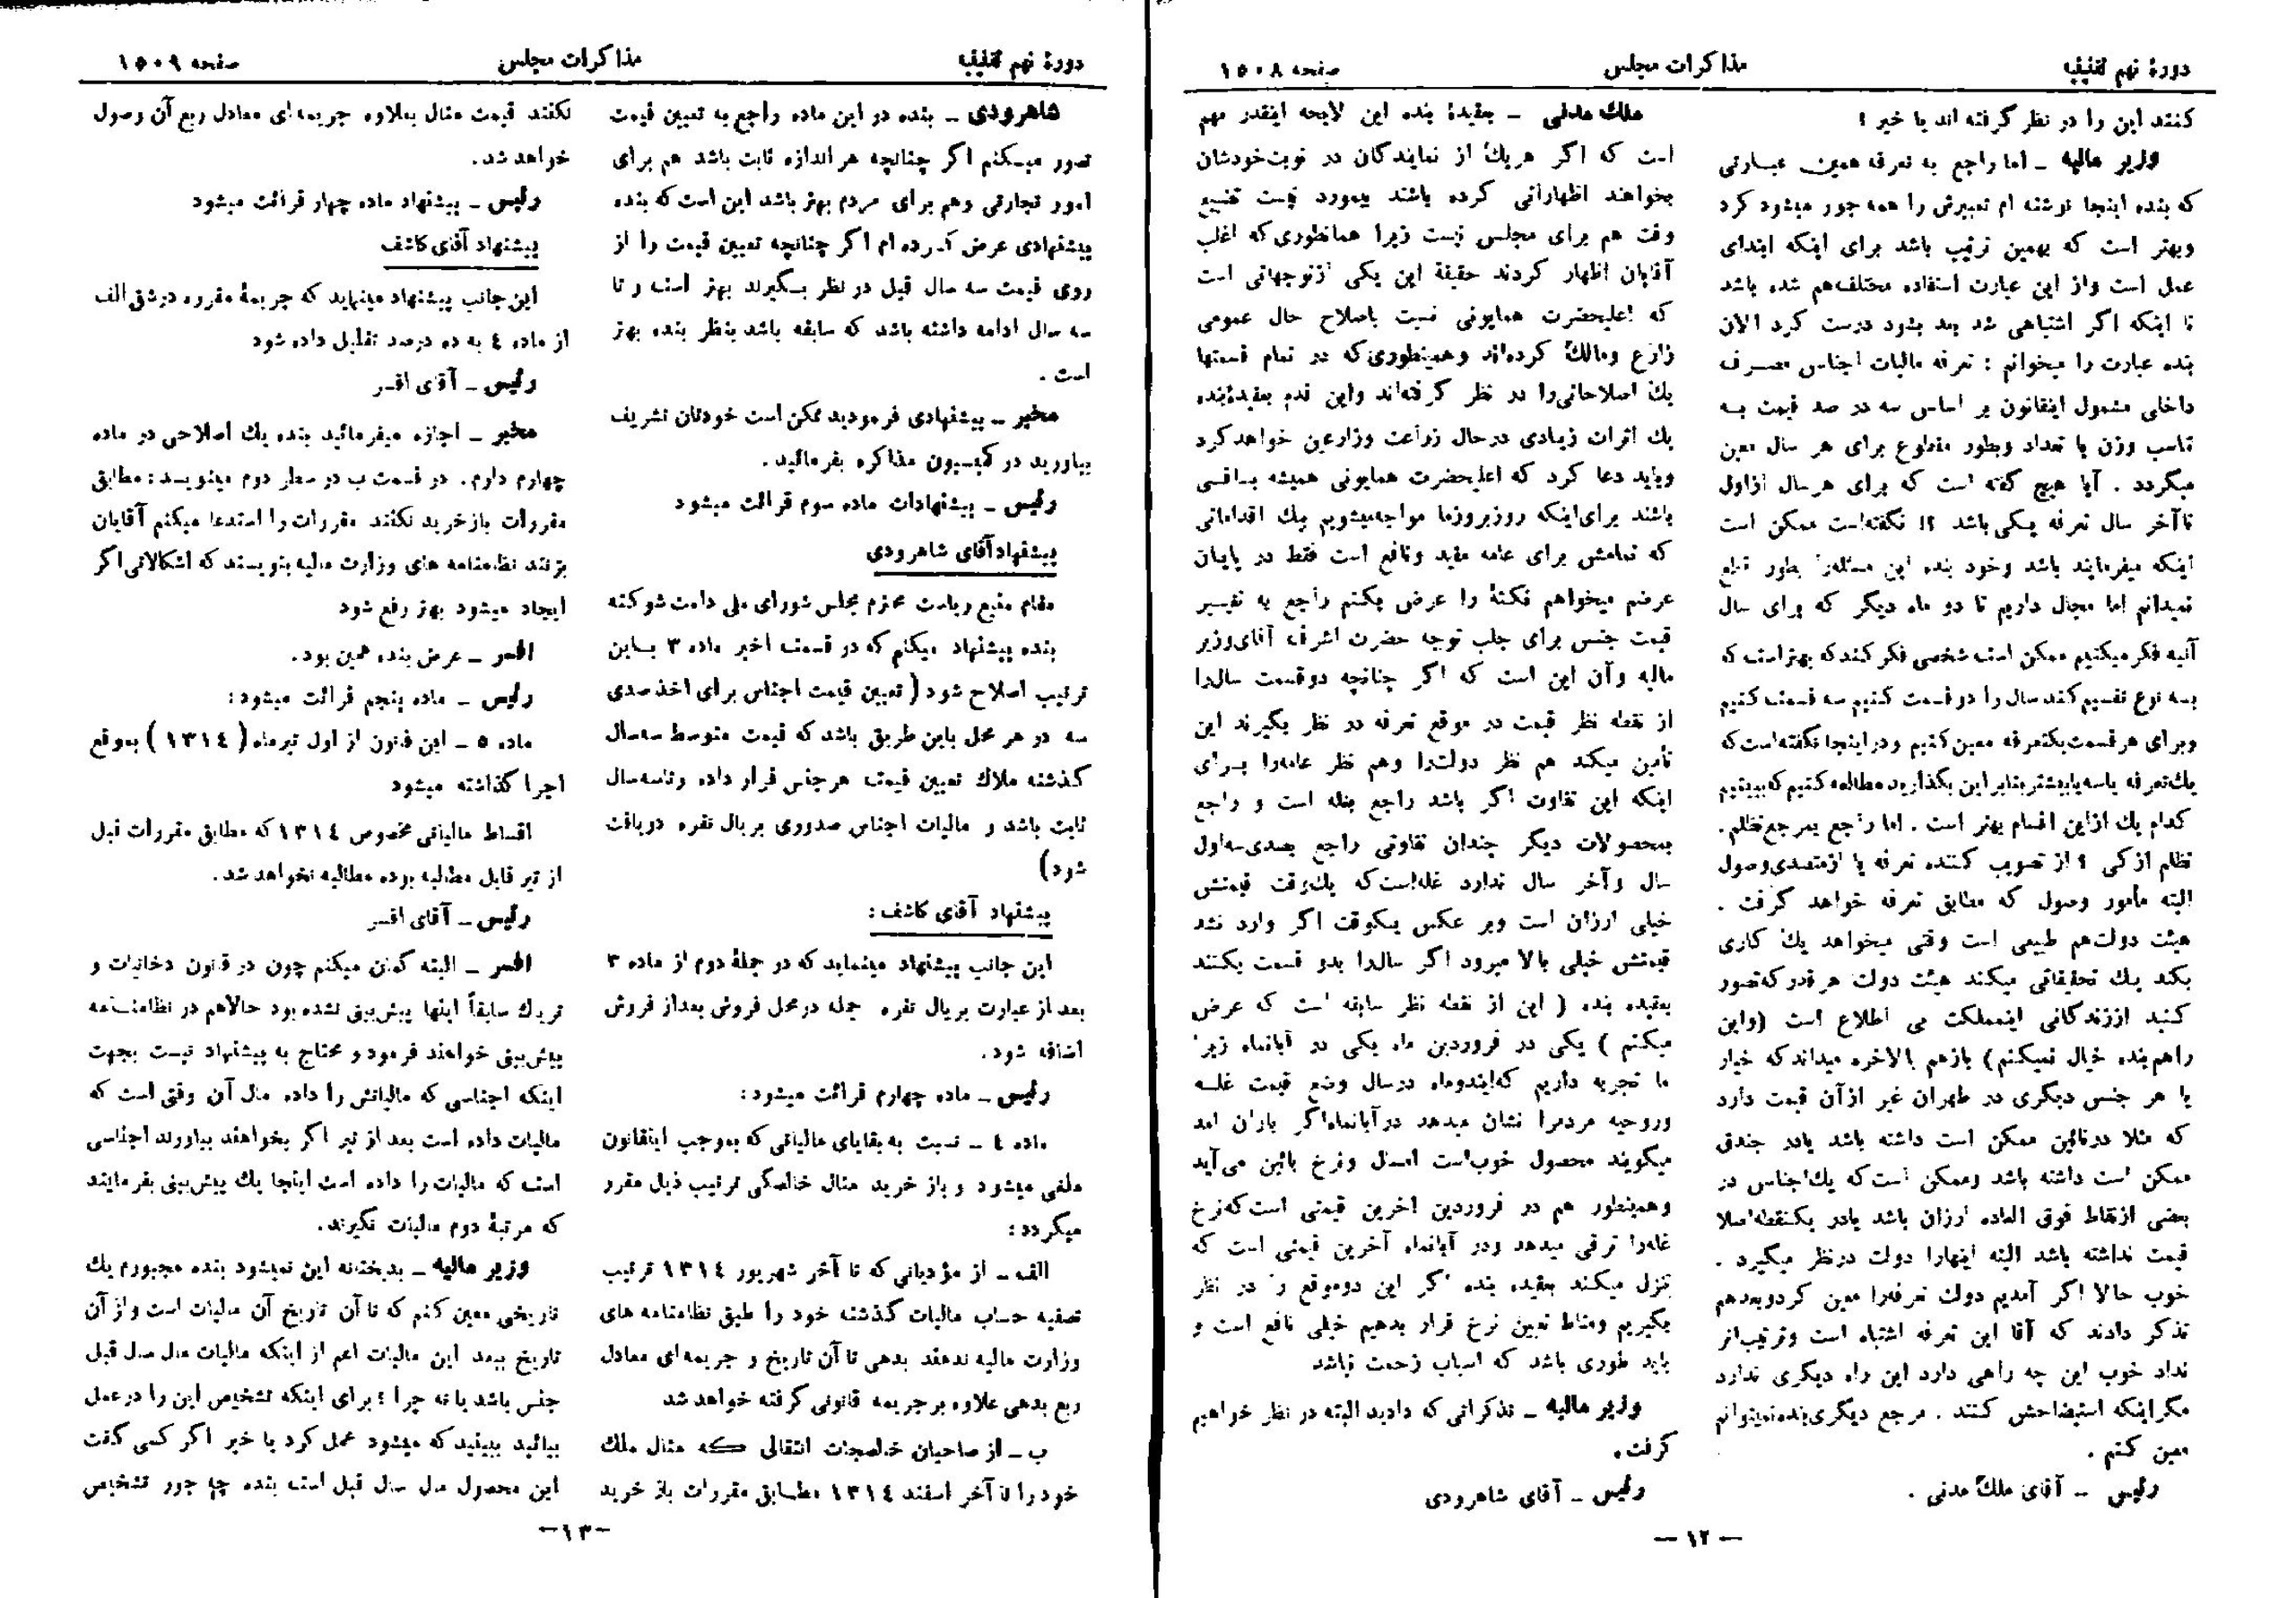 دورهٔ نهم تقنینیه
مذاکرات مجلس
صفحه ۱۵۰۸
کنند این را در نظر گرفته اند یا خیر ؟
وزیر مالیه – اما راجع به تعرفه همین عبارتی
که بنده اینجا نوشته ام تعبیرش را همه جور میشود کرد
وبهتر است که بهمین ترتیب باشد برای اینکه ابتدای
عمل است واز این عبارت استفاده مختلف‌هم شده باشد
تا اینکه اگر اشتباهی شد بعد بشود درست کرد الان
بنده عبارت را میخوانم : تعرفه مالیات اجناس مصرف
داخلی مشمول اینقانون بر اساس سه در صد قیمت به
تناسب وزن یا تعداد وبطور مقطوع برای هر سال معین
میگردد . آیا هیچ گفته است که برای هرسال ازاول
تاآخر سال تعرفه یکی باشد ؟! نگفته‌است ممکن است
اینکه میفرمایند باشد وخود بنده این مسئله‌را بطور قطع
نمیدانم اما مجال داریم تا دو ماه دیگر که برای سال
آتیه فکر میکنیم ممکن است شخصی فکر کند که بهتر است که
بسه نوع تقسیم کند سال را دو قسمت کنیم سه قسمت کنیم
وبرای هر قسمت یکتعرفه معین کنیم ودراینجا نگفته‌است که
یك‌تعرفه یاسه یا بیشتر بنابر این بگذارید مطالعه کنیم که ببینیم
کدام یك ازاین اقسام بهتر است . اما راجع بمرجع تظلم.
تظلم ازکی ؟ از تصویب کننده تعرفه یا ازمتصدی وصول
البته مأمور وصول که مطابق تعرفه خواهد گرفت .
هیئت دولت‌هم طبیعی است وقتی میخواهد یك کاری
بکند یك تحقیقاتی میکند هیئت دولت هرقدر که‌تصور
کنید اززندگانی اینمملکت بی اطلاع است (واین
راهم‌بنده خیال نمیکنم) بازهم بالاخره میداند که خیار
یا هر جنس دیگری در طهران غیر ازآن قیمت دارد
که مثلا درنائین ممکن است داشته باشد یادر جندق
ممکن است داشته باشد وممکن است که یك‌اجناس در
بعضی ازنقاط فوق العاده ارزان باشد یادر یکنقطه‌اصلا
قیمت نداشته باشد البته اینهارا دولت درنظر میگیرد .
خوب حالا اگر آمدیم دولت تعرفه‌را معین کردوبعدهم
تذکر دادند که آقا این تعرفه اشتباه است وترتیب‌اثر
نداد خوب این چه راهی دارد این راه دیگری ندارد
مگراینکه استیضاحش کنند . مرجع دیگری‌بنده‌نمیتوانم
معین کنم .
رئیس – آقای ملك مدنی .
ملك مدنی – بعقیدهٔ بنده این لایحه اینقدر مهم
است که اگر هریك از نمایندگان در نوبت‌خودشان
بخواهند اظهاراتی کرده باشند بیمورد نیست تضییع
وقت هم برای مجلس نیست زیرا همانطوری‌که اغلب
آقایان اظهار کردند حقیقة این یکی ازتوجهاتی است
که اعلیحضرت همایونی نسبت باصلاح حال عمومی
زارع ومالك کرده‌اند وهمینطوری‌که در تمام قسمتها
یك اصلاحاتی‌را در نظر گرفته‌اند واین قدم بعقیدهٔ‌بنده
یك اثرات زیادی درحال زراعت وزارعین خواهدکرد
وباید دعا کرد که اعلیحضرت همایونی همیشه باقی
باشند برای‌اینکه روزبروزما مواجه‌میشویم بیك اقداماتی
که تمامش برای عامه مفید ونافع است فقط در پایان
عرضم میخواهم نکتهٔ را عرض بکنم راجع به تفسیر
قیمت جنس برای جلب توجه حضرت اشرف آقای‌وزیر
مالیه وآن این است که اگر چنانچه دوقسمت سال‌را
از نقطه نظر قیمت در موقع تعرفه در نظر بگیرند این
تأمین میکند هم نظر دولت‌را وهم نظر عامه‌را برای
اینکه این تفاوت اگر باشد راجع بغله است و راجع
بمحصولات دیگر چندان تفاوتی راجع بصدی‌سه‌اول
سال وآخر سال ندارد غله‌است‌که یك‌وقت قیمتش
خیلی ارزان است وبر عکس یکوقت اگر وارد نشد
قیمتش خیلی بالا میرود اگر سال‌را بدو قسمت بکنند
بعقیده بنده ( این از نقطه نظر سابقه است که عرض
میکنم ) یکی در فروردین ماه یکی در آبانماه زیرا
ما تجربه داریم که‌ایندوماه درسال وضع قیمت غله
وروحیه مردم‌را نشان میدهد درآبانماه‌اگر باران آمد
میگویند محصول خوب‌است امسال ونرخ پائین می‌آید
وهمینطور هم در فروردین اخرین قیمتی است‌که‌نرخ
غله‌را ترقی میدهد ودر آبانماه آخرین قیمتی است که
تنزل میکند بعقیده بنده اگر این دوموقع را در نظر
بگیریم ومناط تعیین نرخ قرار بدهیم خیلی نافع است و
باید طوری باشد که اسباب زحمت نباشد
وزیر مالیه – تذکراتی که دادید البته در نظر خواهیم
گرفت.
رئیس – آقای شاهرودی
– ۱۲ –
دورهٔ نهم تقنینیه
مذاکرات مجلس
صفحه ۱۵۰۹
شاهرودی – بنده در این ماده راجع به تعیین قیمت
تصور میکنم اگر چنانچه هر اندازه ثابت باشد هم برای
امور تجارتی وهم برای مردم بهتر باشد این است که بنده
پیشنهادی عرض کرده ام اگر چنانچه تعیین قیمت را از
روی قیمت سه سال قبل در نظر بگیرند بهتر است و تا
سه سال ادامه داشته باشد که سابقه باشد بنظر بنده بهتر
است .
مخبر – پیشنهادی فرمودید ممکن است خودتان تشریف
بیاورید در کمیسیون مذاکره بفرمائید.
رئیس – پیشنهادات ماده سوم قرائت میشود
پیشنهاد آقای شاهرودی
مقام منیع ریاست محترم مجلس شورای ملی دامت شوکته
بنده پیشنهاد میکنم که در قسمت اخیر ماده ۳ باین
ترتیب اصلاح شود ( تعیین قیمت اجناس برای اخذ صدی
سه در هر محل باین طریق باشد که قیمت متوسط سه‌سال
گذشته ملاك تعیین قیمت هرجنس قرار داده و تاسه‌سال
ثابت باشد و مالیات اجناس صدوری بریال نقره دریافت
شود)
پیشنهاد آقای کاشف :
این جانب پیشنهاد مینماید که در جملهٔ دوم از ماده ۳
بعد از عبارت بریال نقره جمله در محل فروش بعداز فروش
اضافه شود.
رئیس – ماده چهارم قرائت میشود :
ماده ٤ – نسبت به بقایای مالیاتی که بموجب اینقانون
ملغی میشود و باز خرید منال خالصگی ترتیب ذیل مقرر
میگردد :
الف – از مؤدیانی که تا آخر شهریور ۱۳۱٤ ترتیب
تصفیه حساب مالیات گذشته خود را طبق نظامنامه های
وزارت مالیه ندهند بدهی تا آن تاریخ و جریمه‌ای معادل
ربع بدهی علاوه بر جریمه قانونی گرفته خواهد شد
ب – از صاحبان خالصجات انتقالی که منال ملك
خود را تا آخر اسفند ۱۳۱٤ مطابق مقررات باز خرید
نکنند قیمت منال بعلاوه جریمه‌ای معادل ربع آن وصول
خواهد شد.
رئیس – پیشنهاد ماده چهار قرائت میشود
پیشنهاد آقای کاشف
این جانب پیشنهاد مینماید که جریمهٔ مقرره در شق الف
از ماده ٤ به ده درصد تقلیل داده شود
رئیس – آقای افسر
مخبر – اجازه میفرمائید بنده یك اصلاحی در ماده
چهارم دارم. در قسمت ب در سطر دوم مینویسد : مطابق
مقررات بازخرید نکنند مقررات را استدعا میکنم آقایان
بزنند نظامنامه های وزارت مالیه بنویسند که اشکالاتی اگر
ایجاد میشود بهتر رفع شود
افسر – عرض بنده همین بود.
رئیس – ماده پنجم قرائت میشود :
ماده ۵ – این قانون از اول تیرماه ( ۱۳۱٤ ) بموقع
اجرا گذاشته میشود
اقساط مالیاتی مخصوص ۱۳۱٤ که مطابق مقررات قبل
از تیر قابل مطالبه بوده مطالبه نخواهد شد.
رئیس – آقای افسر
افسر – البته گمان میکنم چون در قانون دخانیات و
تریاك سابقاً اینها پیش‌بینی نشده بود حالاهم در نظامنامه
پیش‌بینی خواهند فرمود و محتاج به پیشنهاد نیست بجهت
اینکه اجناسی که مالیاتش را داده مال آن وقتی است که
مالیات داده است بعد از تیر اگر بخواهند بیاورند اجناسی
است که مالیات را داده است اینجا یك پیش‌بینی بفرمایند
که مرتبهٔ دوم مالیات نگیرند.
وزیر مالیه – بدبختانه این نمیشود بنده مجبورم یك
تاریخی معین کنم که تا آن تاریخ آن مالیات است و از آن
تاریخ ببعد این مالیات اعم از اینکه مالیات مال سال قبل
جنس باشد یا نه چرا ؟ برای اینکه تشخیص این را در عمل
بیائید ببینید که میشود عمل کرد یا خیر اگر کسی گفت
این محصول مال سال قبل است بنده چه جور تشخیص
–۱۳–